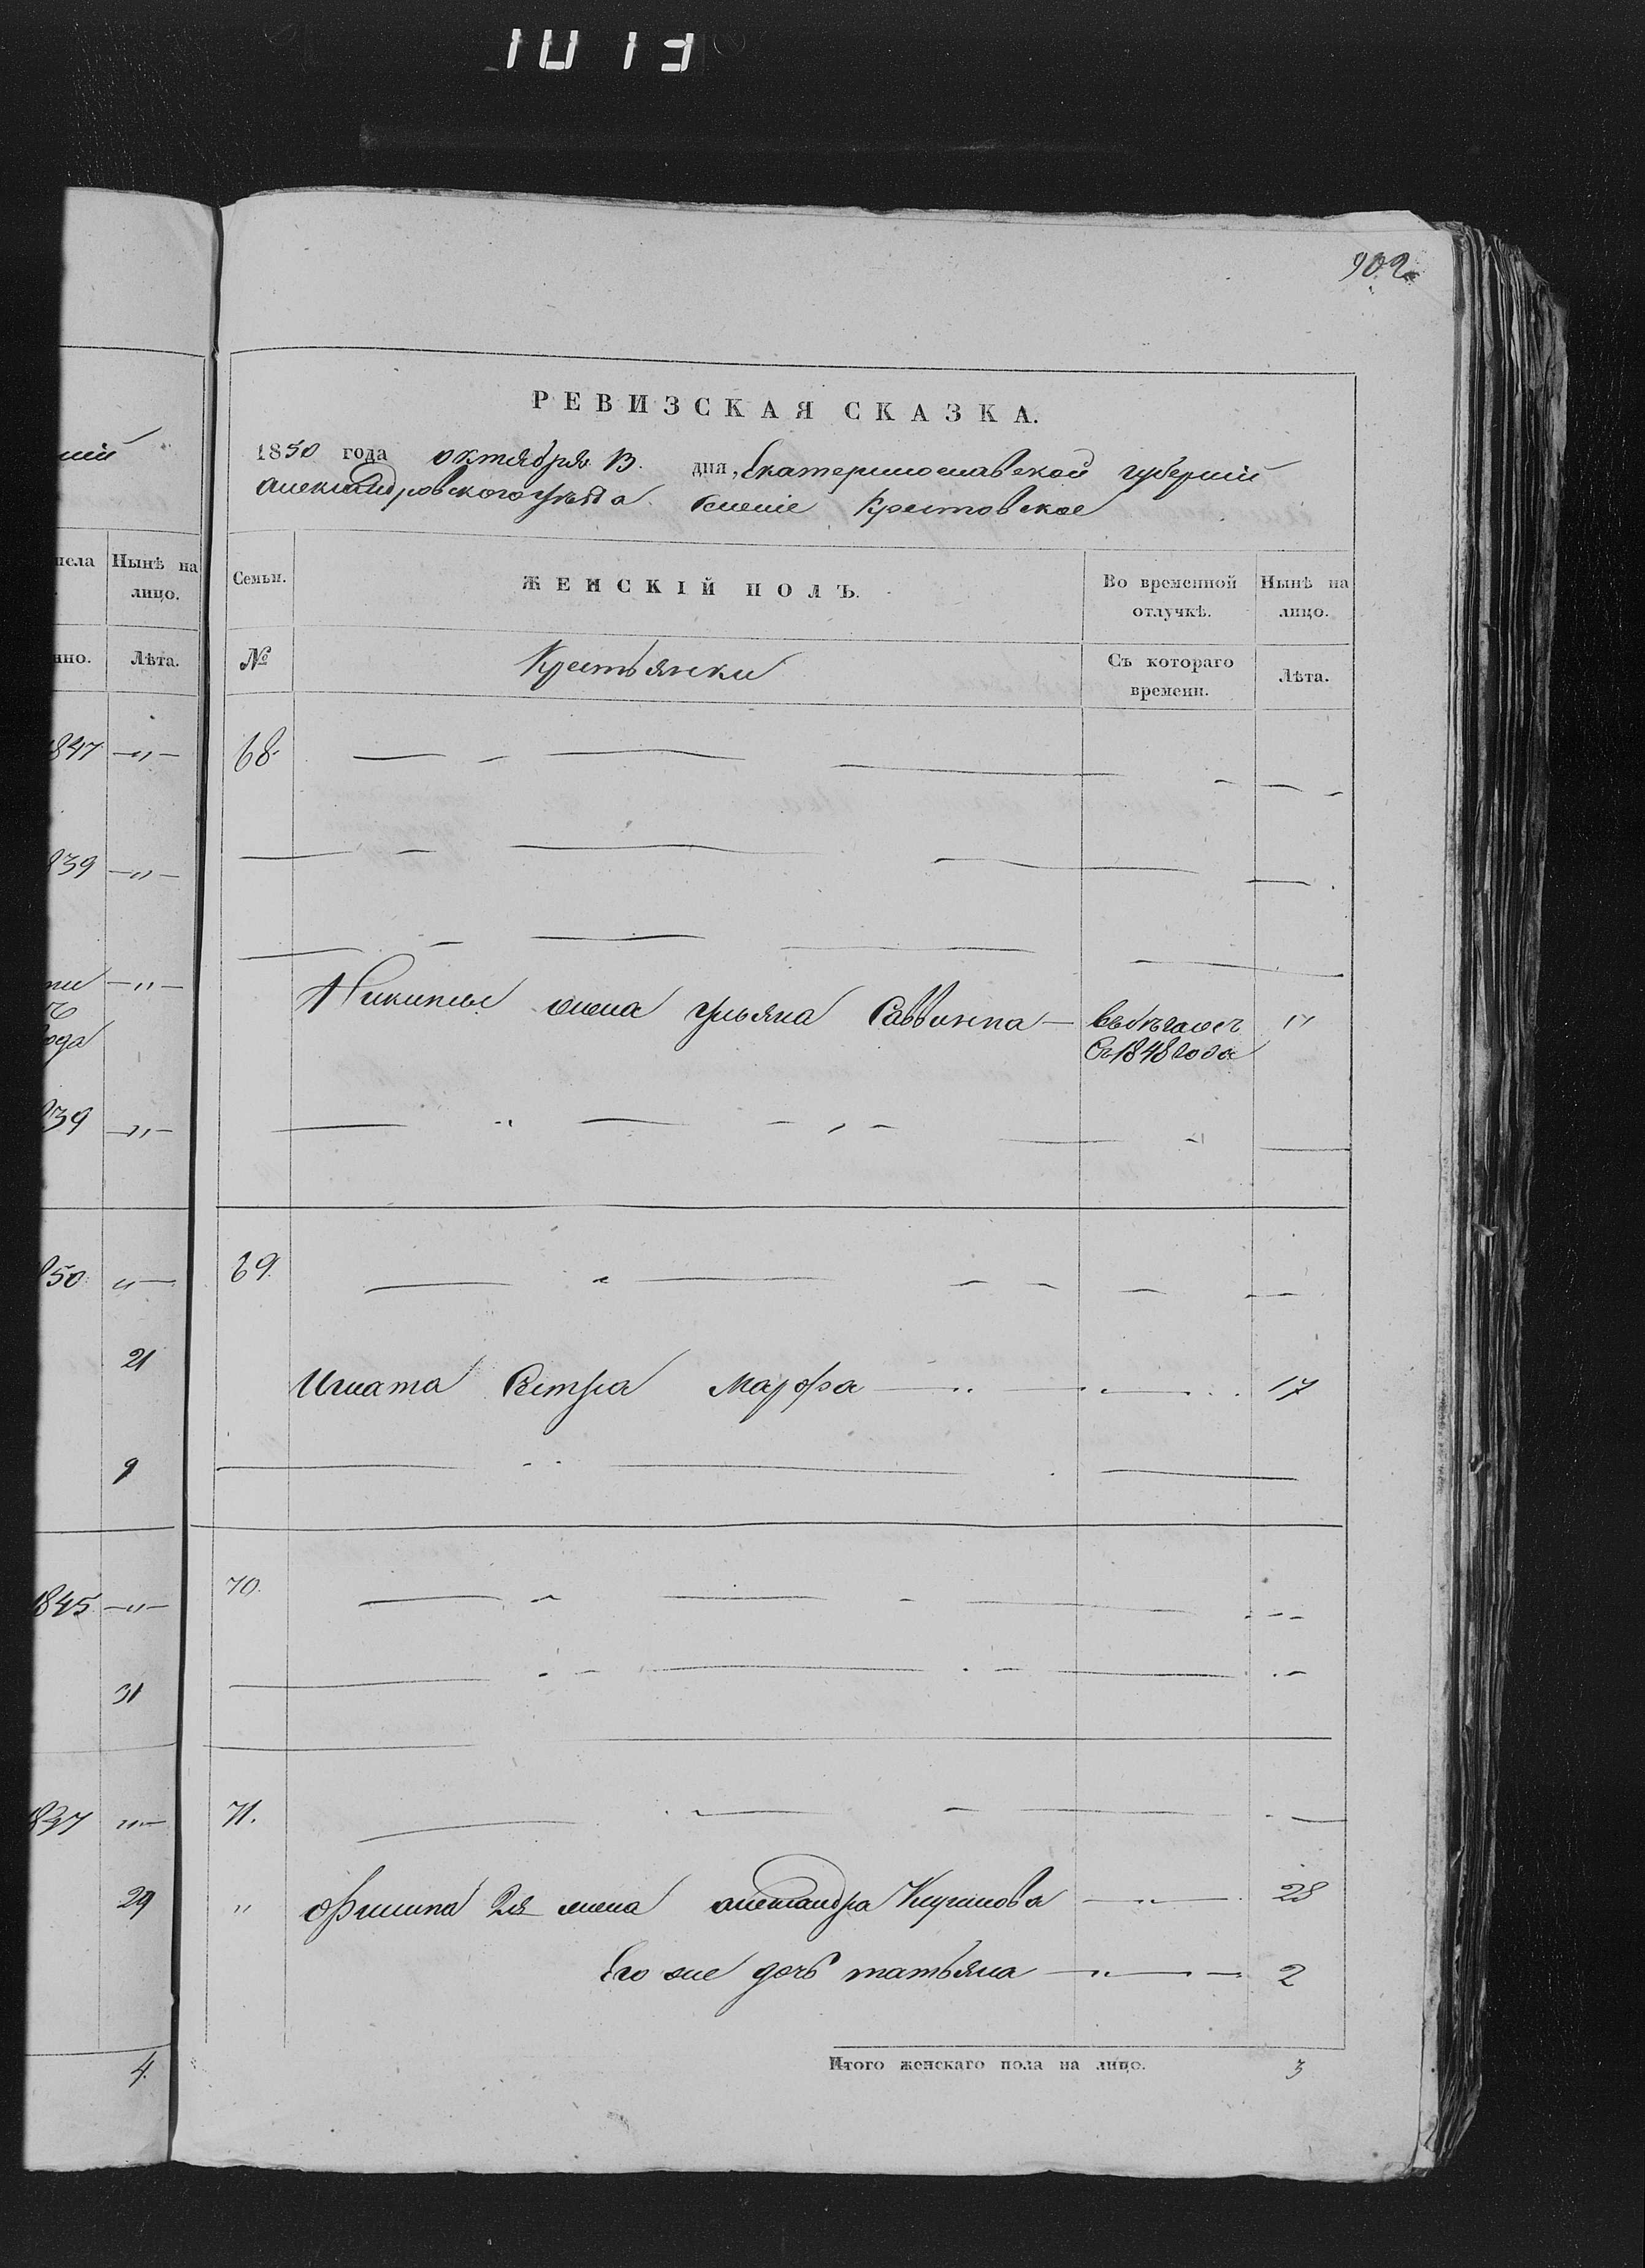 1013
902
РЕВИЗСКАЯ СКАЗКА.
1850 года октября 13. дня, Екатеринославской губерніи
Александровского уезда Имение Крестовское
ній
чела
Нынѣ на лицо.
нно.
Лѣта.
Семьи.
ЖЕНСКІЙ ПОЛЪ.
Во временной отлучкѣ.
Нынѣ на лицо.
№
Крестьянки
Съ котораго времени.
Лѣта.
847 —„—
839 —„—
—„—
ода
839 —„—
850 „—
21
9
1845 —„—
31
837 „—
29
4.
68.
Никиты жена Ульяна Саввина — въ бегах
Съ 1848 года "
69.
Игната сестра Марфа — 17
70.
71.
" Филипа 2я жена александра — 28
Его же дочь татьяна — 2
Итого женскаго пола на лицо. 3